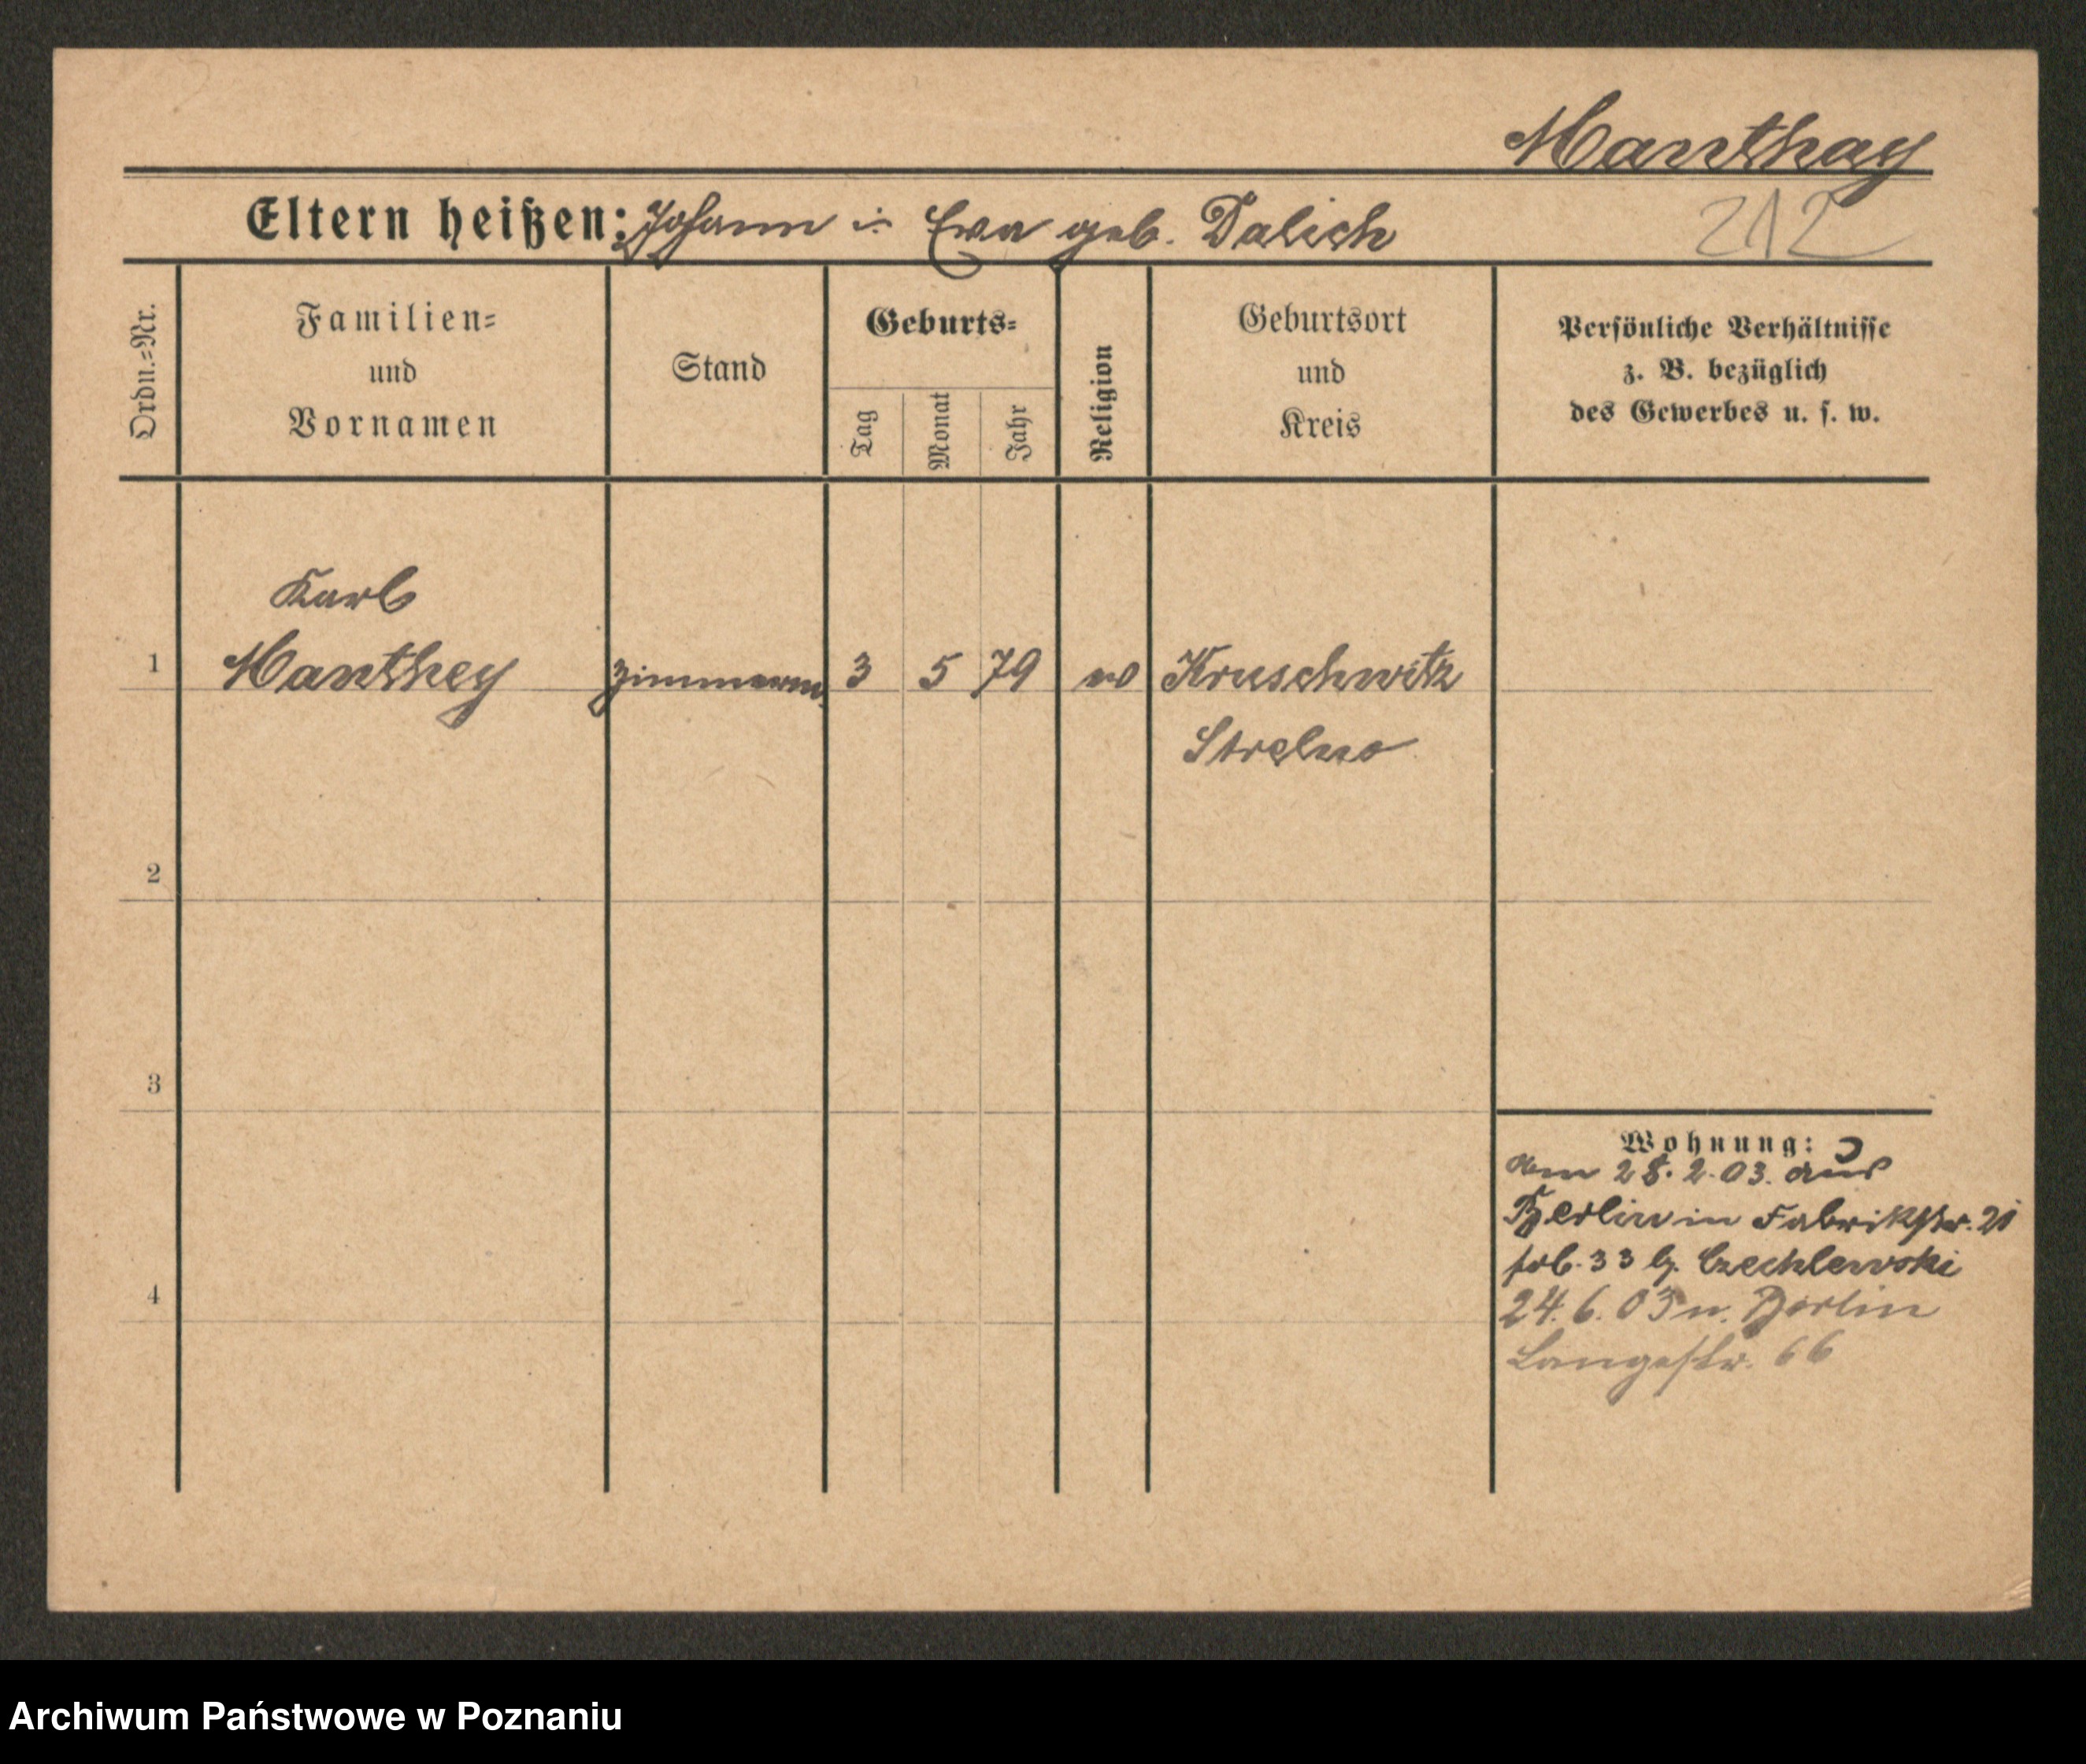 Manthay
Eltern heißen: Johann u. Eva geb. Dalich
212
Ordn.=Nr.
Familien=
und
Vornamen
Stand
Geburts=
Tag
Monat
Jahr
Religion
Geburtsort
und
Kreis
Persönliche Verhältnisse
z. B. bezüglich
des Gewerbes u. s. w.
Karl
1 Manthey Zimmerm. 3 5 79 ev Kruschwitz
Strelno
2
3
4
Wohnung:
am 28.2.03. aus
Berlin in Fabrikstr. 21
33 b. Czechlewski
24.6.03 n. Berlin
Langestr. 66
Archiwum Państwowe w Poznaniu